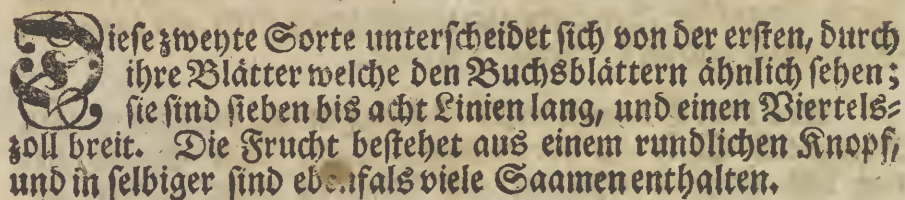 Dieſe zweyte Sorte unterſcheidet ſich von der erſten, durch
ihre Blätter welche den Buchsblättern ähnlich ſehen;
ſie ſind ſieben bis acht Linien lang, und einen Viertels-
zoll breit. Die Frucht beſtehet aus einem rundlichen Knopf,
und in ſelbiger ſind ebenfals viele Saamen enthalten.